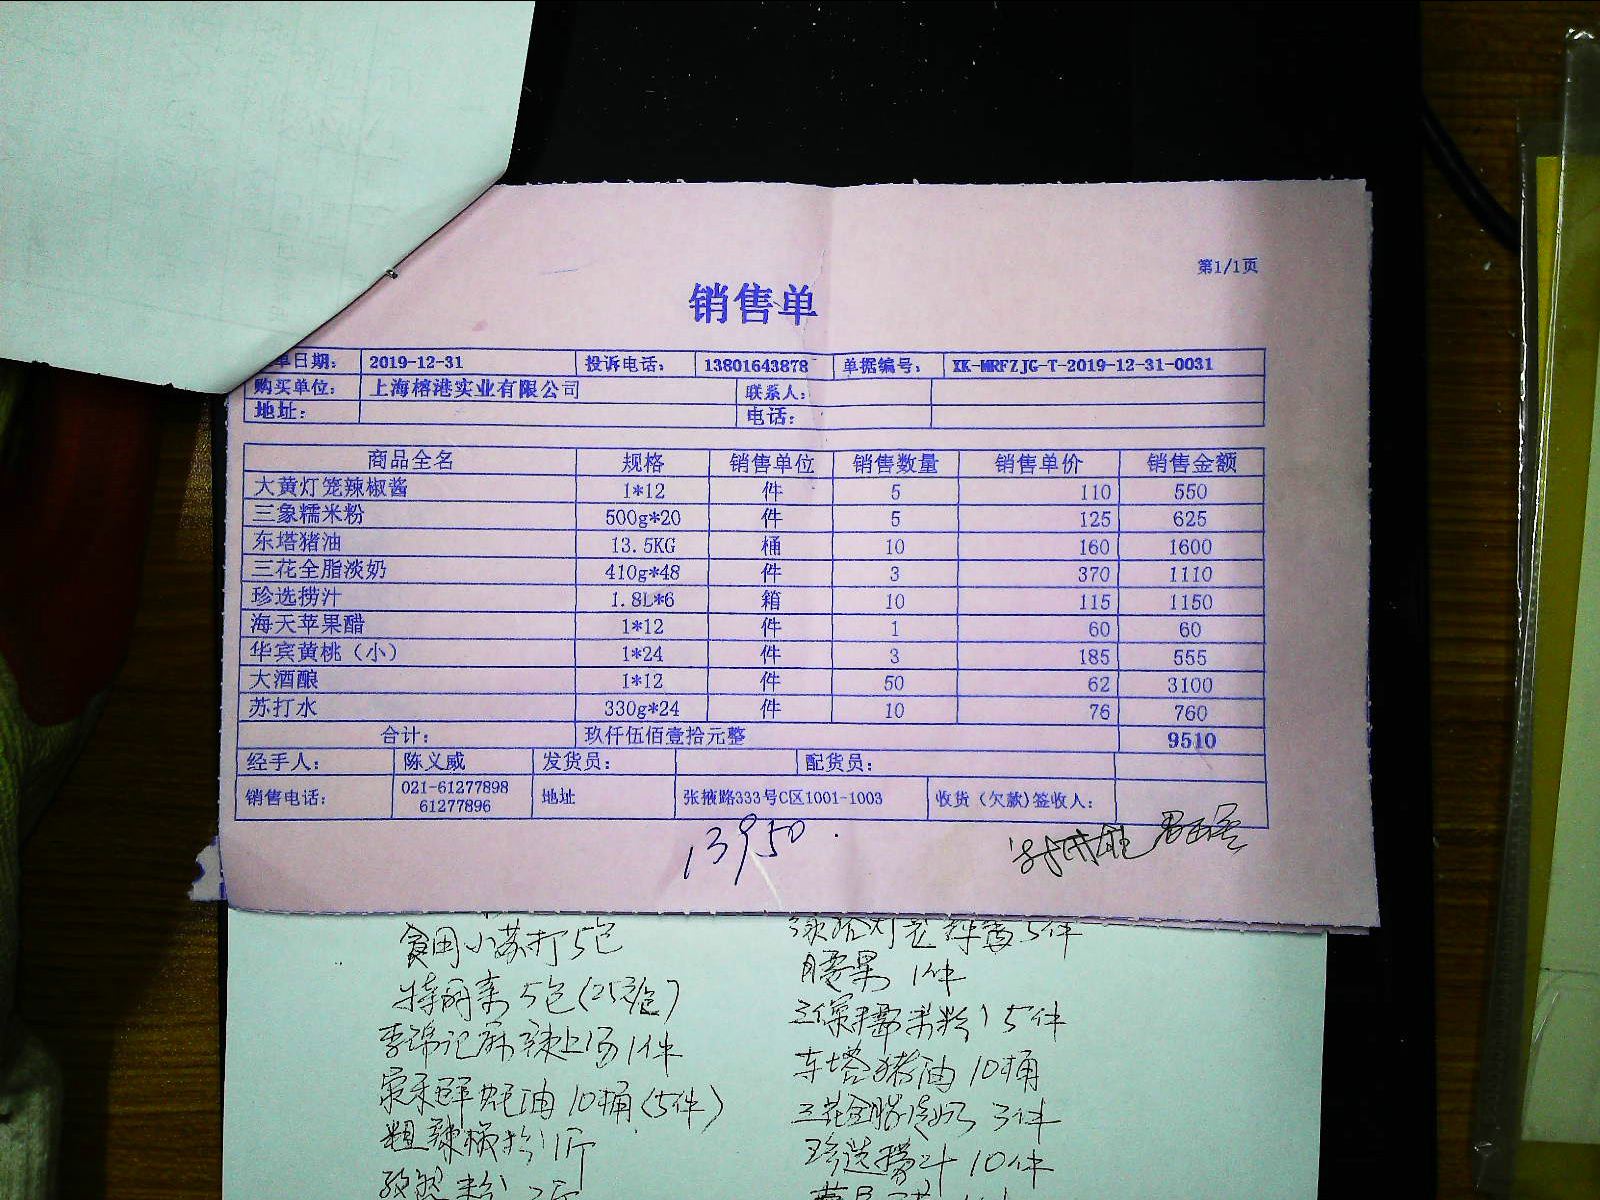 第1/1页
销售单
单日期： 2019-12-31 投诉电话： 13801643878 单据编号： XK-MRFZJG-T-2019-12-31-0031
购买单位： 上海榕港实业有限公司 联系人：
地址： 电话：
商品全名 规格 销售单位 销售数量 销售单价 销售金额
大黄灯笼辣椒酱 1*12 件 5 110 550
三象糯米粉 500g*20 件 5 125 625
东塔猪油 13.5KG 桶 10 160 1600
三花全脂淡奶 410g*48 件 3 370 1110
珍选捞汁 1.8L*6 箱 10 115 1150
海天苹果醋 1*12 件 1 60 60
华宾黄桃（小） 1*24 件 3 185 555
大酒酿 1*12 件 50 62 3100
苏打水 330g*24 件 10 76 760
合计： 玖仟伍佰壹拾元整 9510
经手人： 陈义威 发货员： 配货员：
销售电话： 021-61277898 61277896 地址 张掖路333号C区1001-1003 收货（欠款）签收人：
13950
食用小苏打5包 5件
5包 腰果 1件
李锦记 1件 三象糯米粉 5件
蚝油 10桶（5件） 东塔猪油 10桶
粗辣椒粉1斤 三花全脂淡奶 3件
孜然粉 珍选捞汁 10件